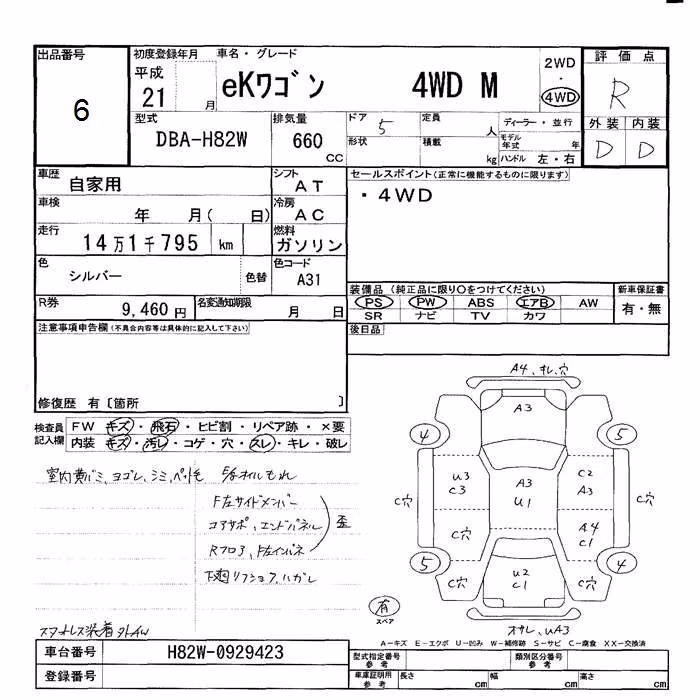 出品番号 初度登録年月 車名・グレード 2WD 評価点
6 平成 21 月 eKワゴン 4WD M ・ 4WD R
型式 排気量 ドア 5 定員 人 ディーラー・並行 外装 内装
DBA-H82W 660 CC 形状 積載 kg モデル年式 年 ハンドル 左・右 D D
車歴 自家用 シフト AT セールスポイント(正常に機能するものに限ります)
車検 年 月( 日) 冷房 AC ・4WD
走行 14万1千795 km 燃料 ガソリン
色 シルバー 色替 色コード A31 装備品(純正品に限り○をつけてください) 新車保証書
R券 9,460円 名変通知期限 月 日 PS PW ABS エアB AW 有・無
SR ナビ TV カワ
注意事項申告欄(不具合内容等は具体的に記入して下さい) 後日品
修復歴 有〔箇所 〕
検査員記入欄 FW キズ・飛石・ヒビ割・リペア跡・×要
内装 キズ・汚レ・コゲ・穴・スレ・キレ・破レ
室内黄バミ、ヨゴレ、シミ、ペット毛 オイルもれ
F左サイドメンバー
コアサポ、エンドパネル 歪
Rフロア、F左インパネ
下廻リフショク、ハガレ
スタットレス装着 外AW
A4、オレ、穴
A3
4 5
U3 C3 A3 U1 C2 A3
C穴 C穴 A4 C1 C穴
5 4
C穴 U2 C1 C穴
有 スペア
オサレ、UA3
A-キズ E-エクボ U-凹み W-補修跡 S-サビ C-腐食 XX-交換済
車台番号 H82W-0929423 型式指定番号 参考 類別区分番号 参考
登録番号 車庫証明用 参考 長さ cm 幅 cm 高さ cm